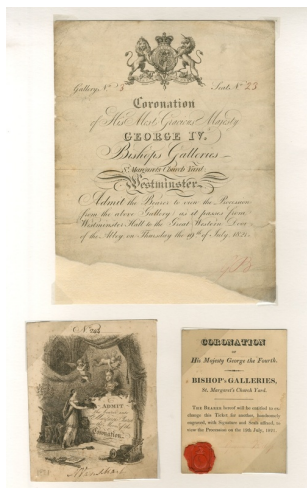 Gallery, No 28 Seat No 23
Coronation
of His Most Gracious Majesty
GEORGE IV.
Bishops Galleries
St Margarets Church Yard
Westminster
Admit the Bearer to view the Procession
from the above Gallery as it passes from
Westminster Hall to the Great Western Door
of the Abbey on Thursday the 19th of July 1821.
No
ADMIT
Coronation
CORONATION
OF
His Majesty George the Fourth.
BISHOP'S GALLERIES,
St. Margaret's Church Yard.
THE BEARER hereof will be entitled to ex-
change this Ticket for another, handsomely
engraved, with Signature and Seals affixed, to
view the Procession on the 19th July, 1821.